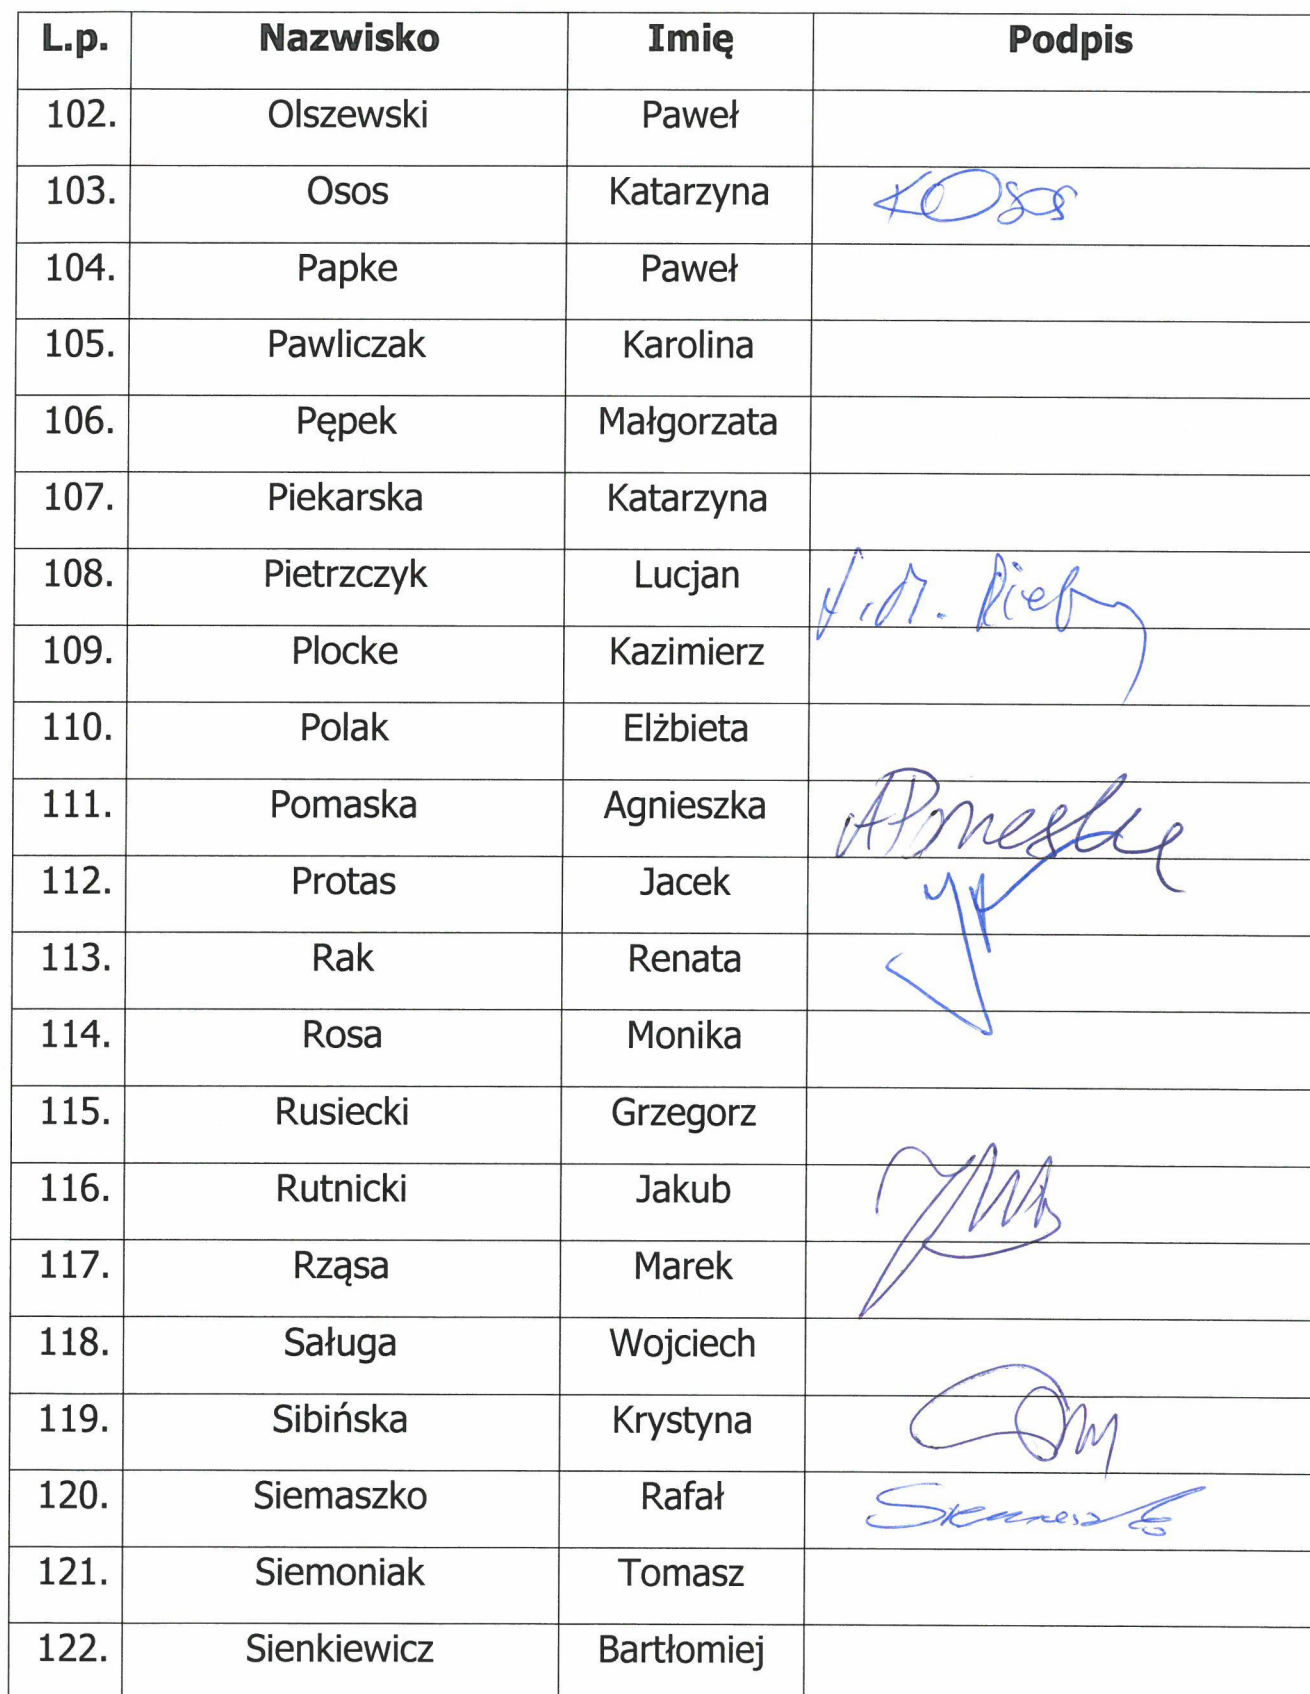 L.p. Nazwisko Imię Podpis
102. Olszewski Paweł
103. Osos Katarzyna KOsos
104. Papke Paweł
105. Pawliczak Karolina
106. Pępek Małgorzata
107. Piekarska Katarzyna
108. Pietrzczyk Lucjan
109. Plocke Kazimierz
110. Polak Elżbieta
111. Pomaska Agnieszka APomaska
112. Protas Jacek
113. Rak Renata
114. Rosa Monika
115. Rusiecki Grzegorz
116. Rutnicki Jakub
117. Rząsa Marek
118. Saługa Wojciech
119. Sibińska Krystyna
120. Siemaszko Rafał Siemaszko
121. Siemoniak Tomasz
122. Sienkiewicz Bartłomiej